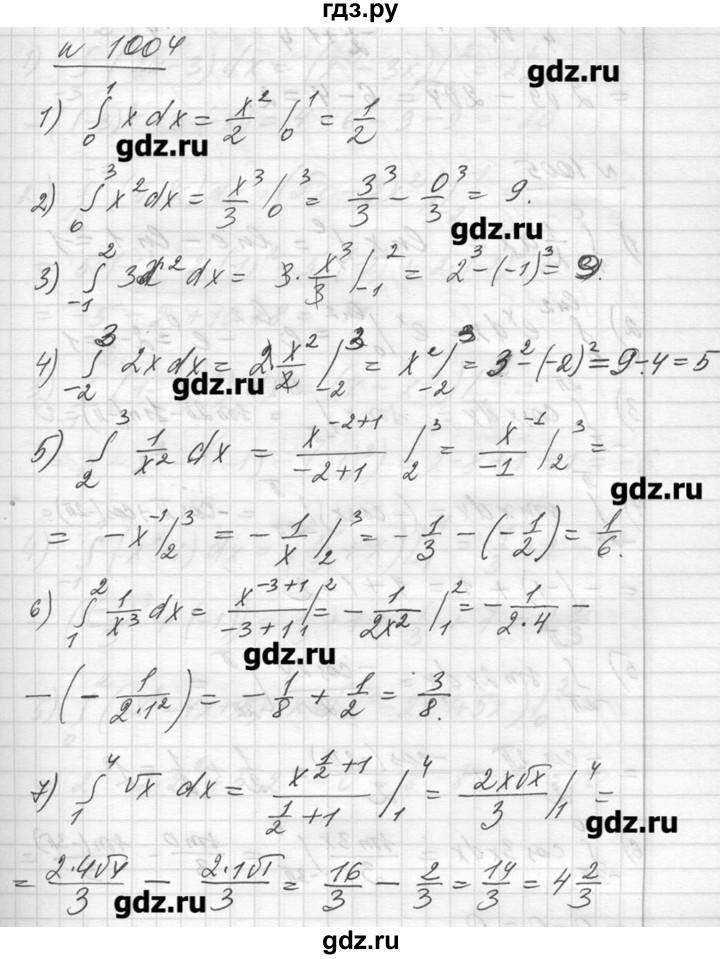 гдз.ру
N 1004
gdz.ru
1) ∫₀¹ x dx = x²/2 |₀¹ = 1/2
gdz.ru
2) ∫₀³ x² dx = x³/3 |₀³ = 3³/3 - 0³/3 = 9.
gdz.ru
3) ∫₋₁² 3x² dx = 3·x³/3 |₋₁² = 2³-(-1)³ = 9.
4) ∫₋₂³ 2x dx = 2x²/2 |₋₂³ = x² |₋₂³ = 3²-(-2)² = 9-4 = 5
gdz.ru
5) ∫₂³ 1/x² dx = x⁻²⁺¹/(-2+1) |₂³ = x⁻¹/(-1) |₂³ =
gdz.ru
= -x⁻¹ |₂³ = -1/x |₂³ = -1/3 - (-1/2) = 1/6.
6) ∫₁² 1/x³ dx = x⁻³⁺¹/(-3+1) |₁² = -1/(2x²) |₁² = -1/(2·4) -
gdz.ru
-(-1/(2·1²)) = -1/8 + 1/2 = 3/8.
7) ∫₁⁴ √x dx = x^(1/2+1)/(1/2+1) |₁⁴ = 2x√x/3 |₁⁴ =
gdz.ru
= 2·4√4/3 - 2·1√1/3 = 16/3 - 2/3 = 14/3 = 4 2/3
gdz.ru
gdz.ru